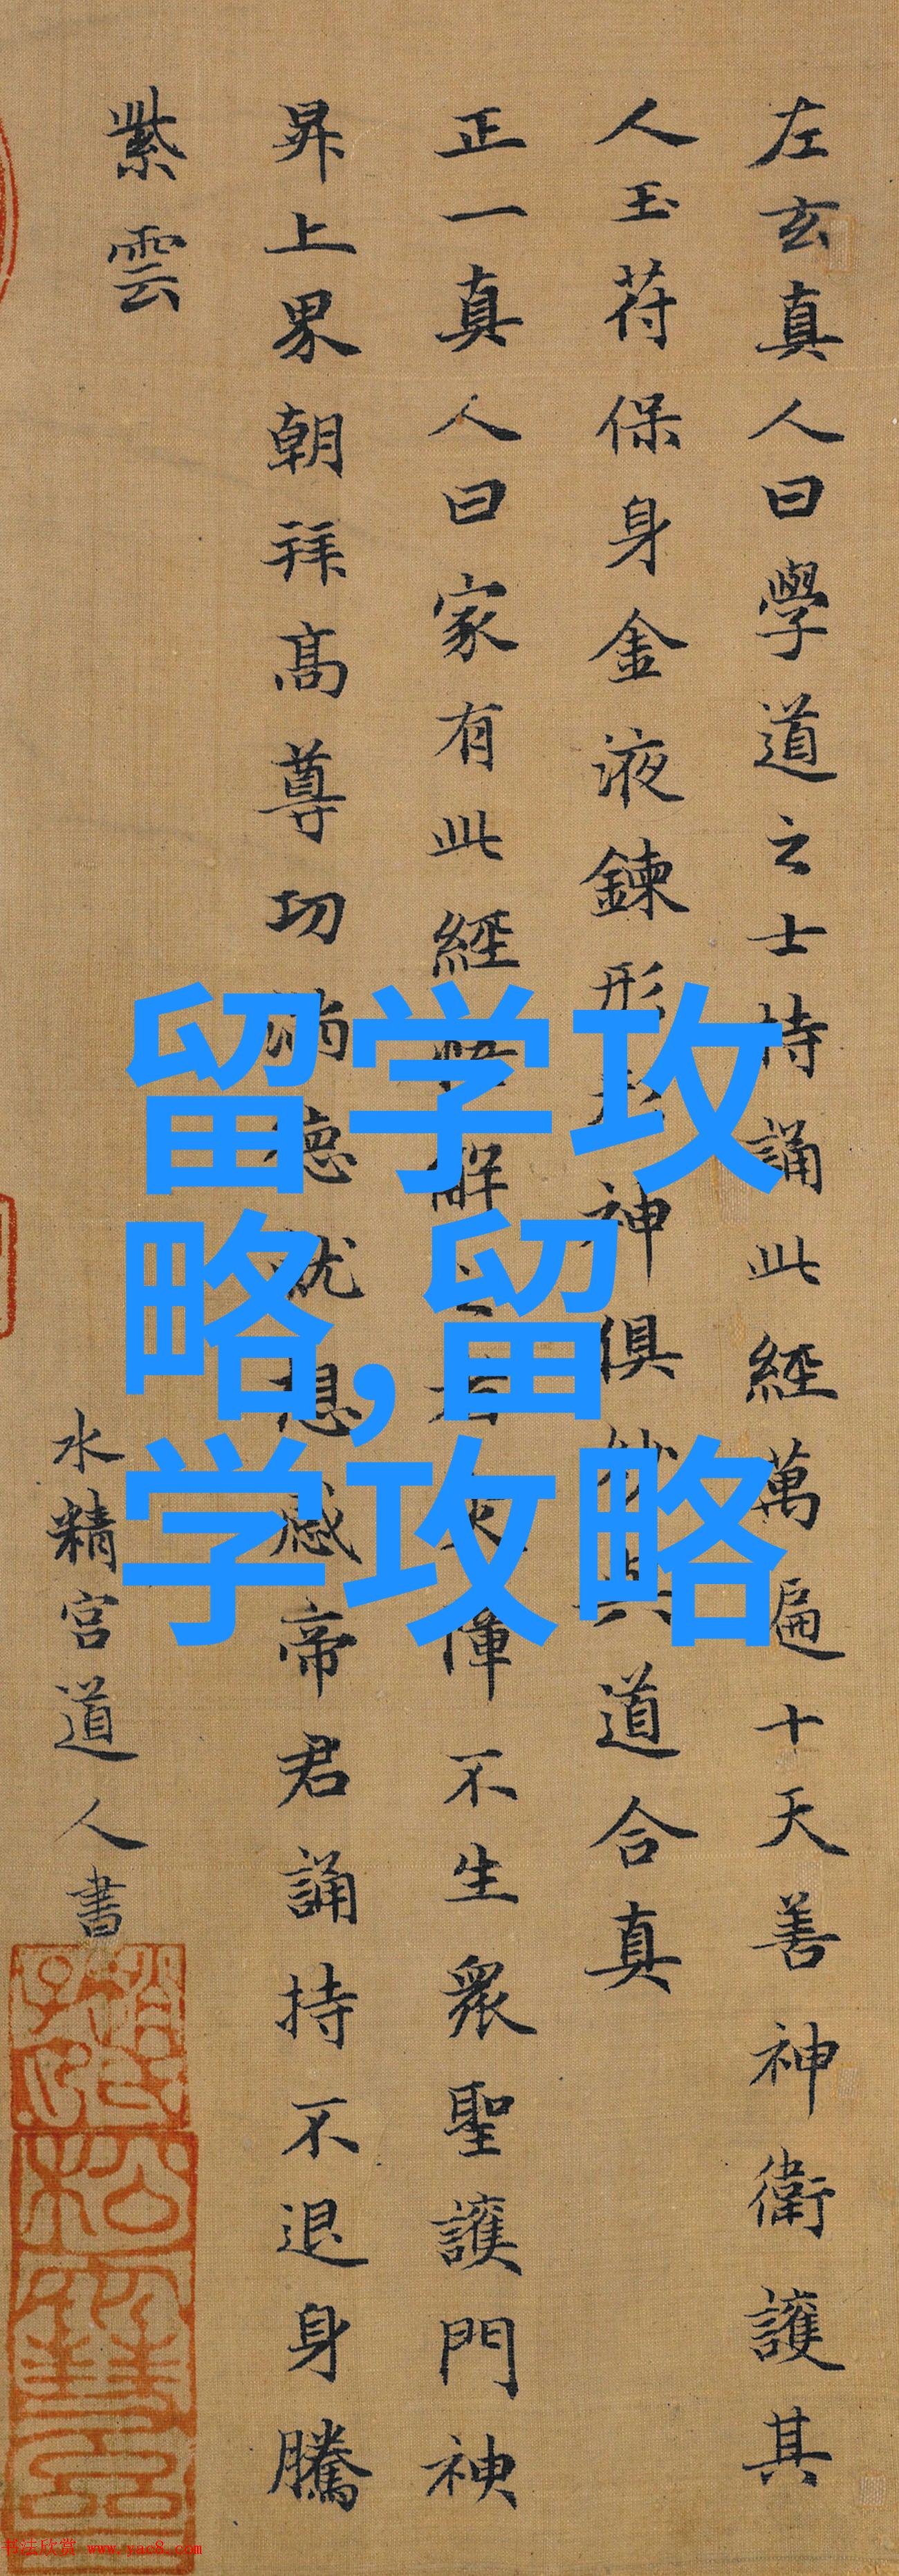 左玄真人曰學道之士持誦此經萬遍十天善神衛護其
人玉苻保身金液鍊形形神俱妙與道合真
正一真人曰家有此經悟解之者灾障不生眾聖護門神
昇上界朝拜高尊功滿德就想感帝君誦持不退身騰
紫雲
水精宮道人書
留学攻
略,留
学攻略
书法欣赏 www.yac8.com